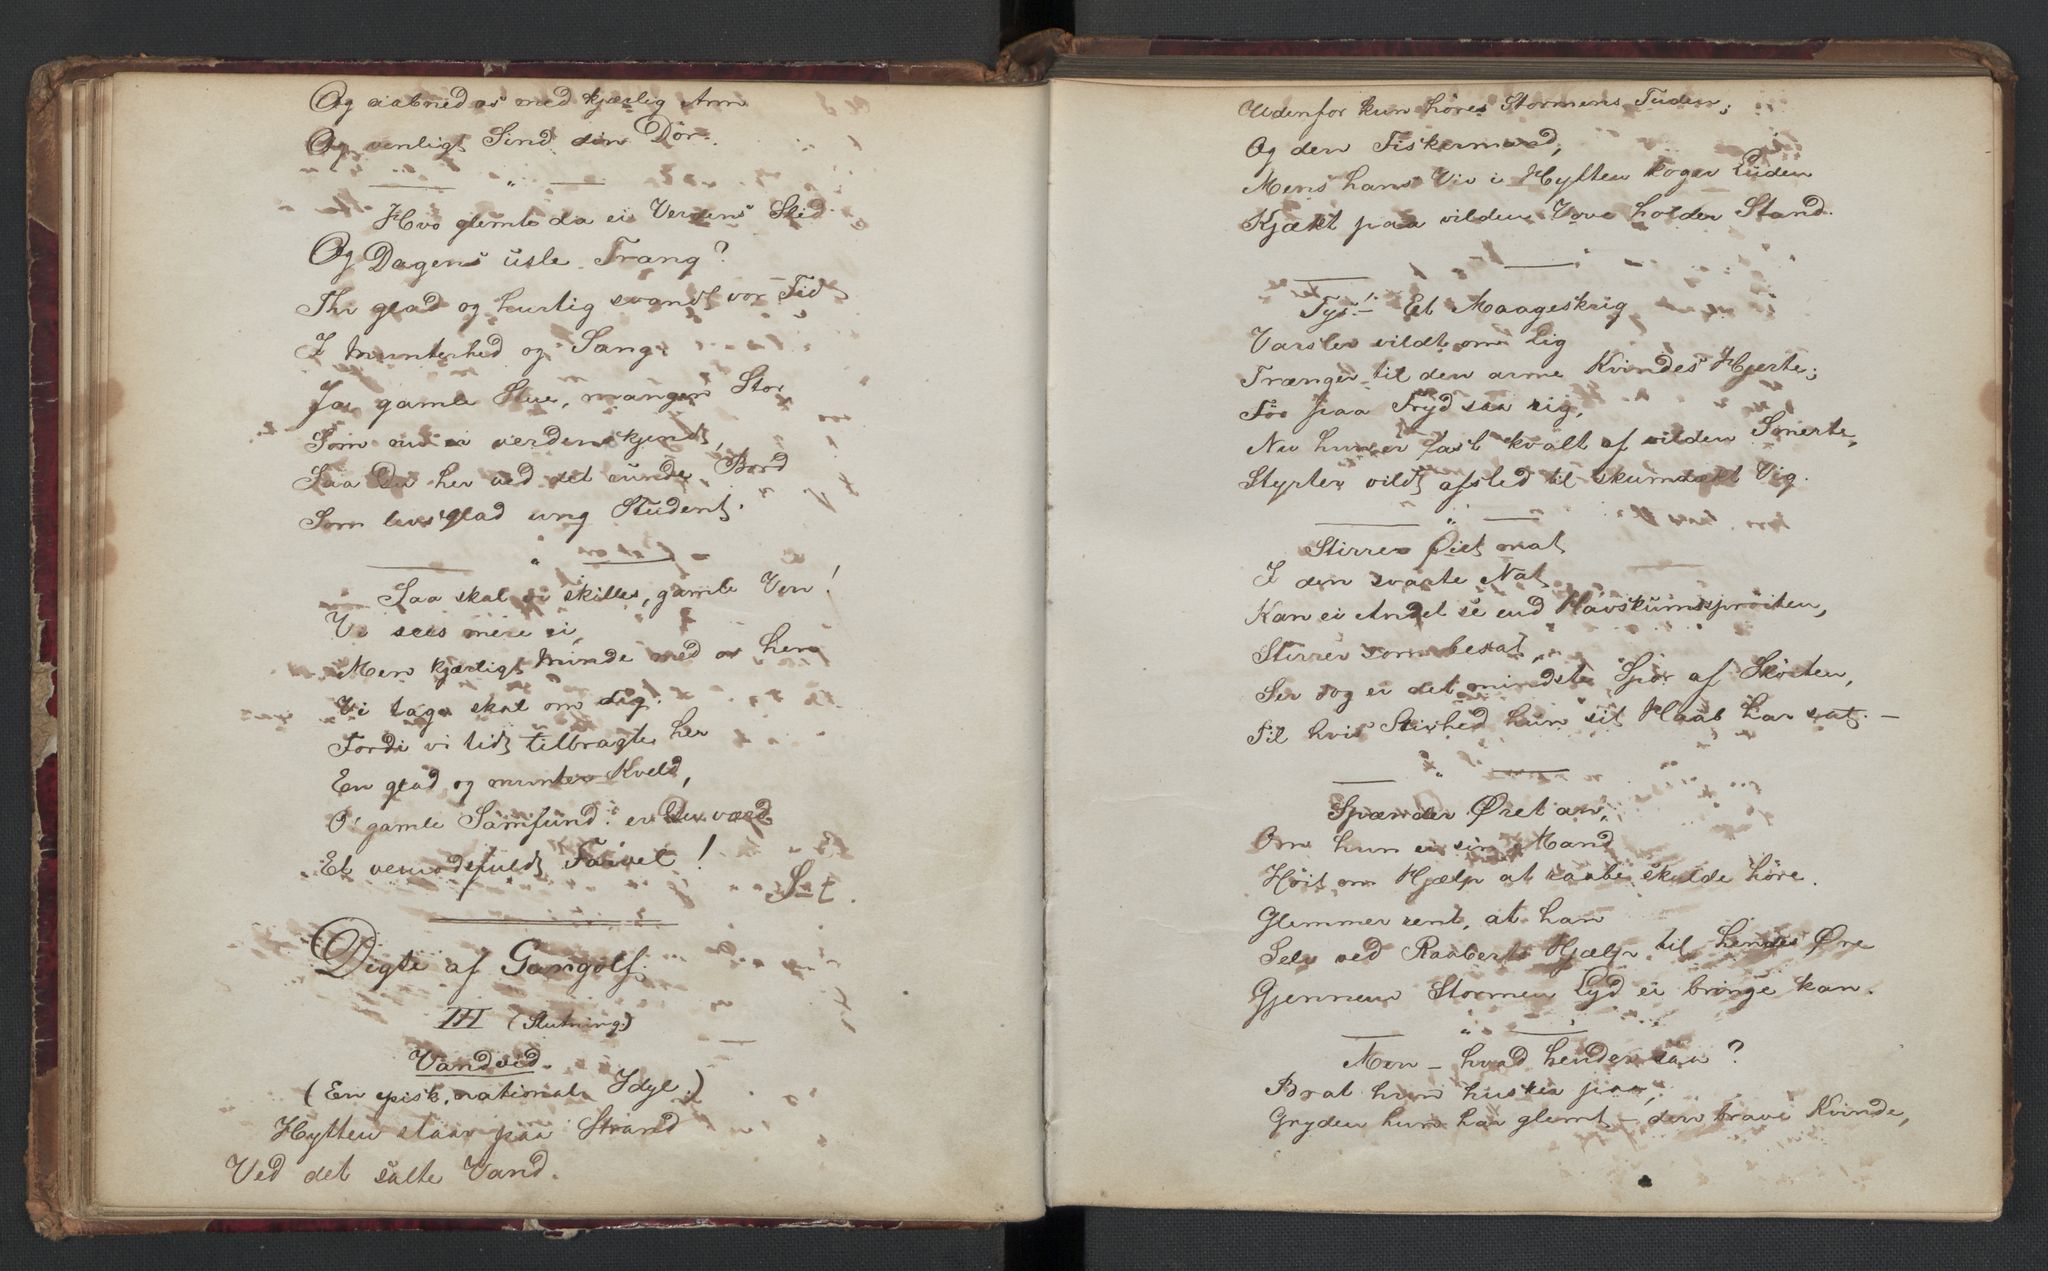 Og aabned os med kjærlig Arm
Og venligt Sind din Dör.
Hvo glemte da ei Verdens Skid
Og Dagens usle Trang?
Thi glad og hurtig svandt vor Tid
I Munterhed og Sang.
Ja, gamle Stue, mangen Stor
Som nu er verdenskjendt,
Saa Du her ved det runde Bord
Som livsglad ung Student.
Saa skal vi skilles, gamle Ven!
Vi sees mere ei,
Men kjærligt Minde med os hen
Vi tage skal om dig!
Fordi vi tidt tilbragte her
En glad og munter Kveld,
O! gamle Samfund: er Du værd
Et vemodsfuldt Farvel!
S-t.
Digte af Gangolf.
III (Slutning.)
Vandvid.
(En episk, national Idyl.)
Hytten staar paa Strand
Ved det salte Vand.
Udenfor kun höres Stormens Tuden;
Og den Fiskermand,
Mens hans Viv i Hytten koger Luden
Kjækt paa vilden Vove holder Stand.
Tys! - Et Maageskrig
Varsler vildt om Lig
Trænger til den arme Kvindes Hjerte;
För paa Fryd saa rig,
Nu hun er fast kvalt af vilden Smerte,
Styrter vildt afsted til skumdækt Vig.
Stirrer Öiet mat
I den svarte Nat
Kan ei Andet se end Havskumssprøiten,
Stirrer som besat,
Ser dog ei det mindste Spor af Skøiten,
Til hvis Stivhed hun sit Haab har sat. -
Spænder Øret an,
Om hun ei sin Mand
Høit om Hjælp at raabe skulde höre.
Glemmer rent, at han
Selv ved Raabets Hjælp til hendes Øre
Gjennem Stormen Lyd ei bringe kan.
Men - hvad hender saa?
Brat hun husker paa,
Gryden hun har glemt - den brave Kvinde,